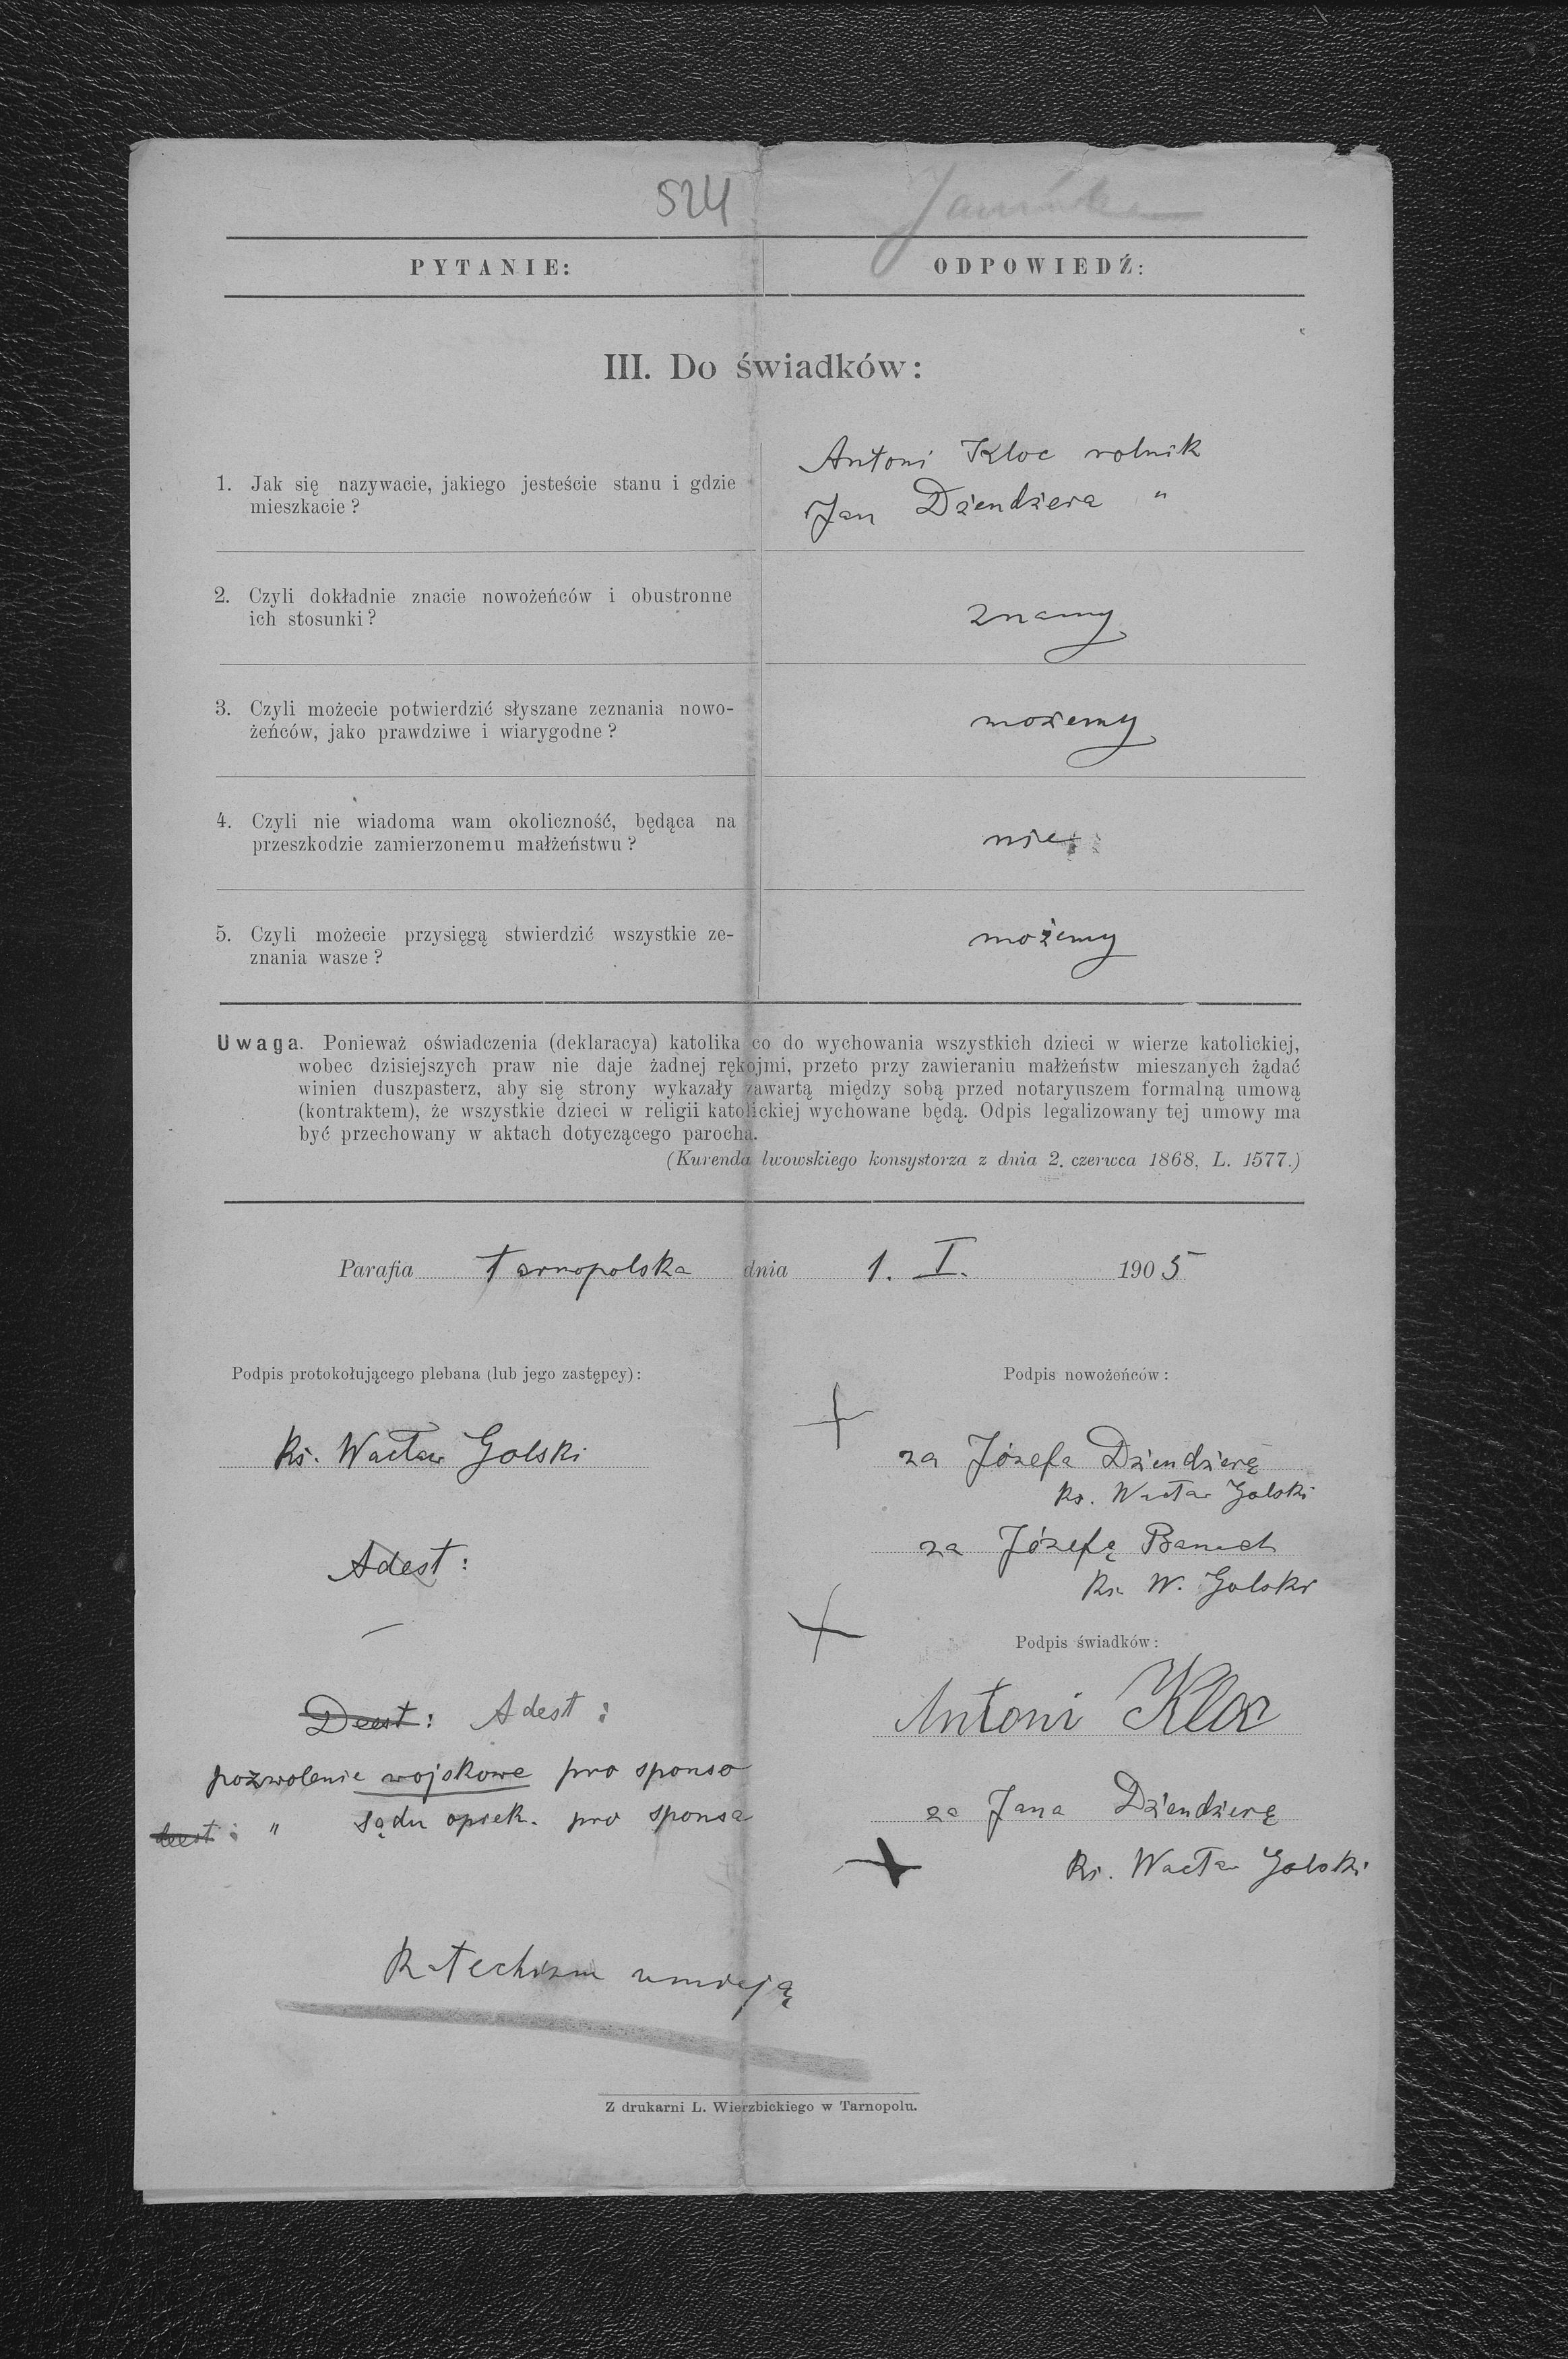 524
PYTANIE:
ODPOWIEDŹ:
III. Do świadków:
1. Jak się nazywacie, jakiego jesteście stanu i gdzie
mieszkacie?
Antoni Kloc rolnik
Jan Dziendziera "
2. Czyli dokładnie znacie nowożeńców i obustronne
ich stosunki?
znamy
3. Czyli możecie potwierdzić słyszane zeznania nowo-
żeńców, jako prawdziwe i wiarygodne?
możemy
4. Czyli nie wiadoma wam okoliczność, będąca na
przeszkodzie zamierzonemu małżeństwu?
nie
5. Czyli możecie przysięgą stwierdzić wszystkie ze-
znania wasze?
możemy
Uwaga. Ponieważ oświadczenia (deklaracya) katolika co do wychowania wszystkich dzieci w wierze katolickiej,
wobec dzisiejszych praw nie daje żadnej rękojmi, przeto przy zawieraniu małżeństw mieszanych żądać
winien duszpasterz, aby się strony wykazały zawartą między sobą przed notaryuszem formalną umową
(kontraktem), że wszystkie dzieci w religii katolickiej wychowane będą. Odpis legalizowany tej umowy ma
być przechowany w aktach dotyczącego parocha.
(Kurenda lwowskiego konsystorza z dnia 2. czerwca 1868, L. 1577.)
Parafia Tarnopolska dnia 1. I. 1905
Podpis protokołującego plebana (lub jego zastępcy):
Ks. Wacław Golski
Podpis nowożeńców:
za Józefa Dziendzierę
Ks. Wacław Golski
za Józefę Banach
Ks. W. Golski
Adest:
Podpis świadków:
Antoni Kloc
za Jana Dziendzierę
Ks. Wacław Golski
Deest: Adest:
pozwolenie wojskowe pro sponso
deest: " sądu opiek. pro sponsa
Katechizm umieją
Z drukarni L. Wierzbickiego w Tarnopolu.